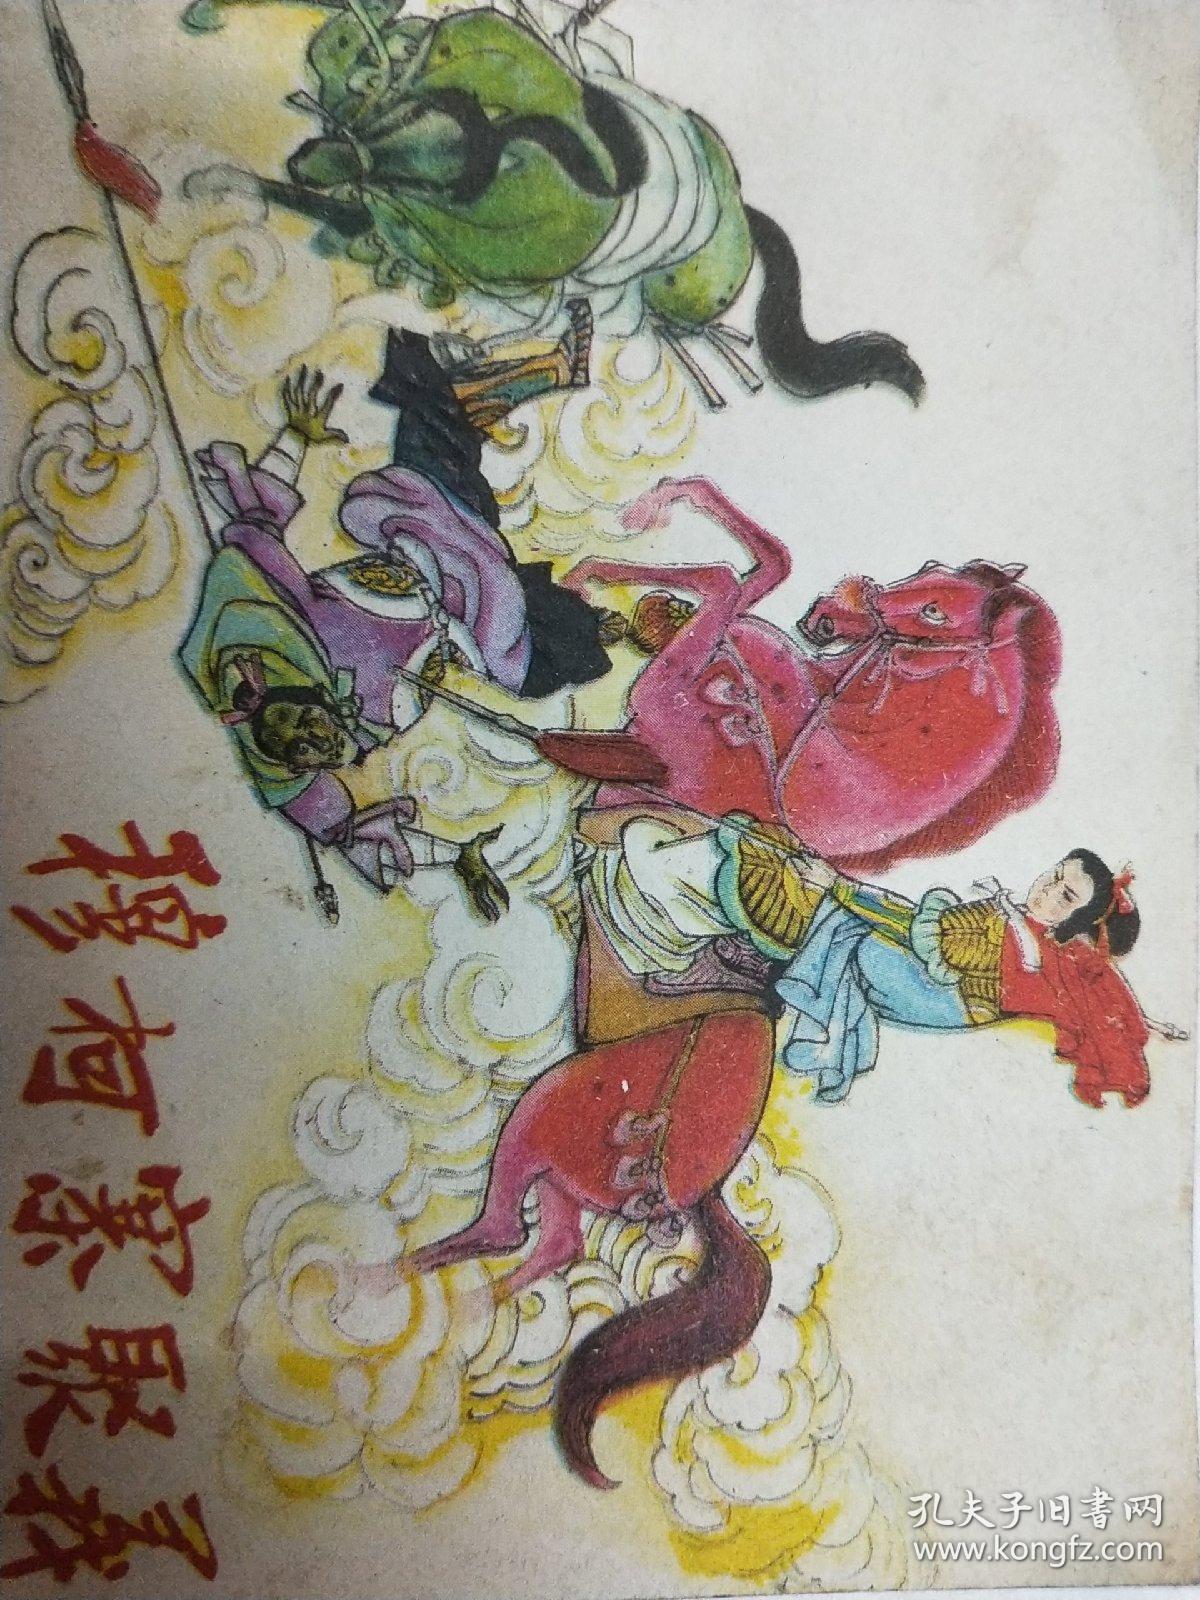 穆柯寨聚義
孔夫子旧書网
www.kongfz.com